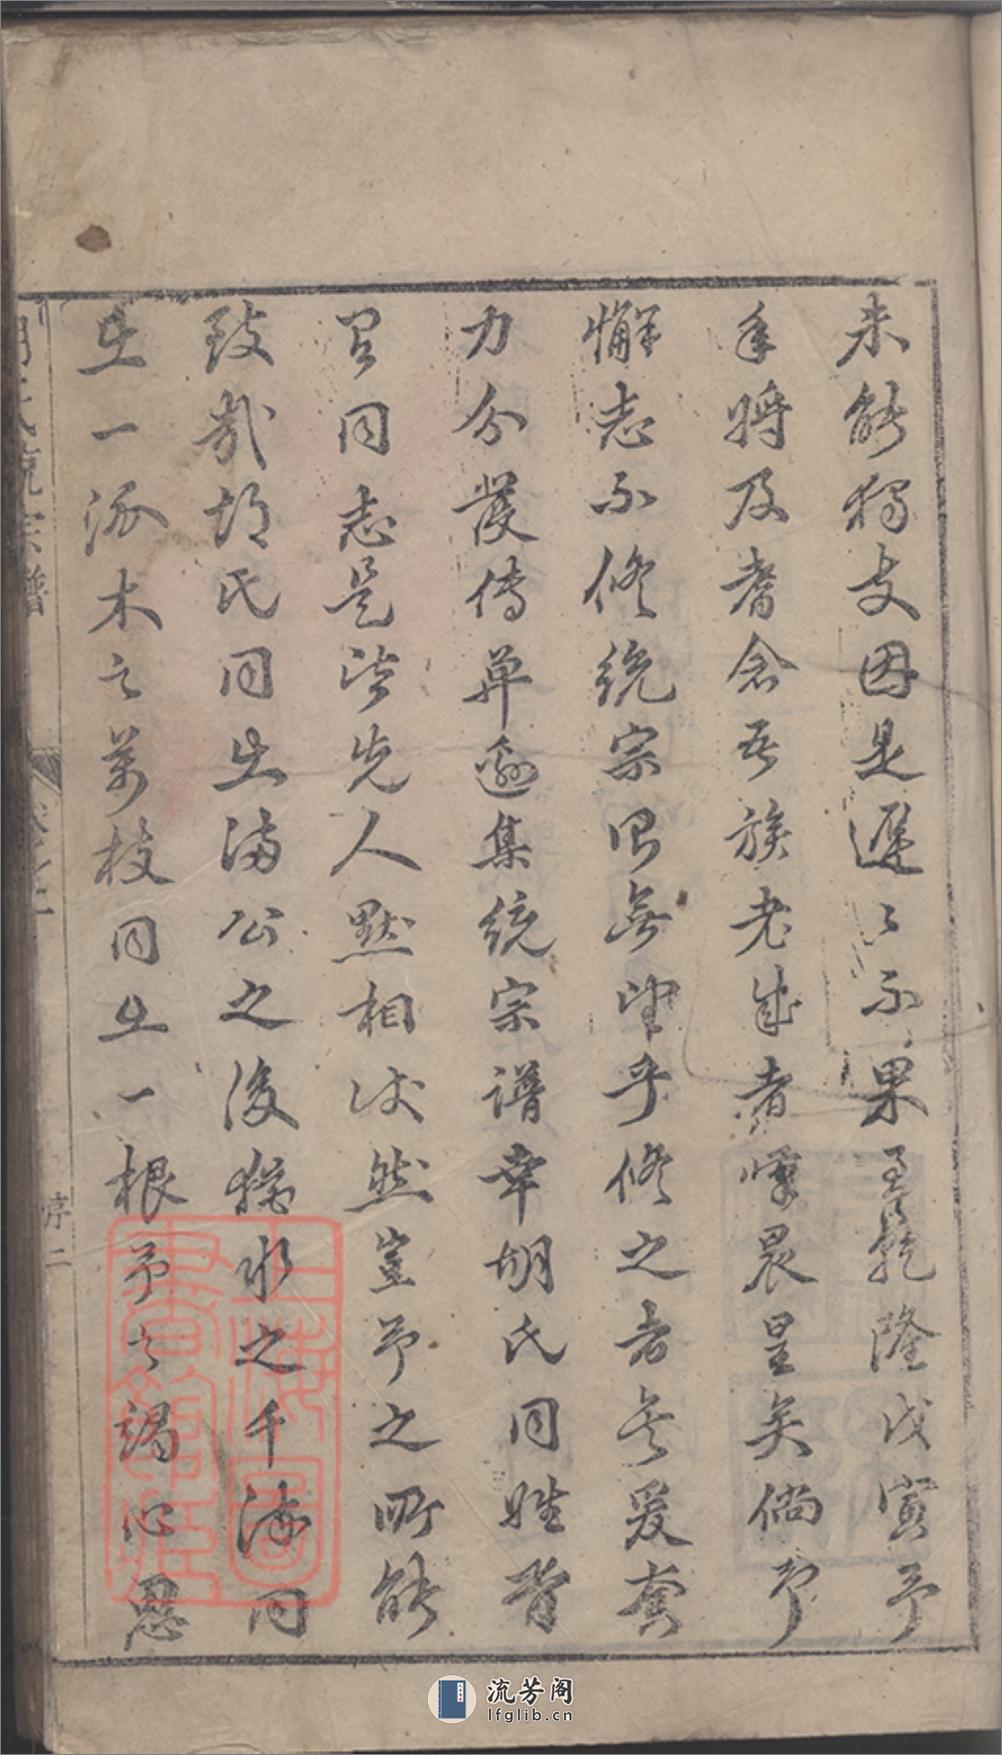 未能獨支因是遲〻不果至乾隆戊寅予
年將及耆念吾族老成者嘆晨星矣倘予
懈志不修統宗恐無望乎修之者矣爰奮
力分發傳單遜集統宗譜幸胡氏同姓皆
有同志是誠先人默相使然豈予之所能
致哉胡氏同出滿公之後猶水之千海同
出一派木之萬枝同出一根予之竭心思
氏統宗譜
卷之二
序二
上海圖書館藏
流芳阁
lfglib.cn